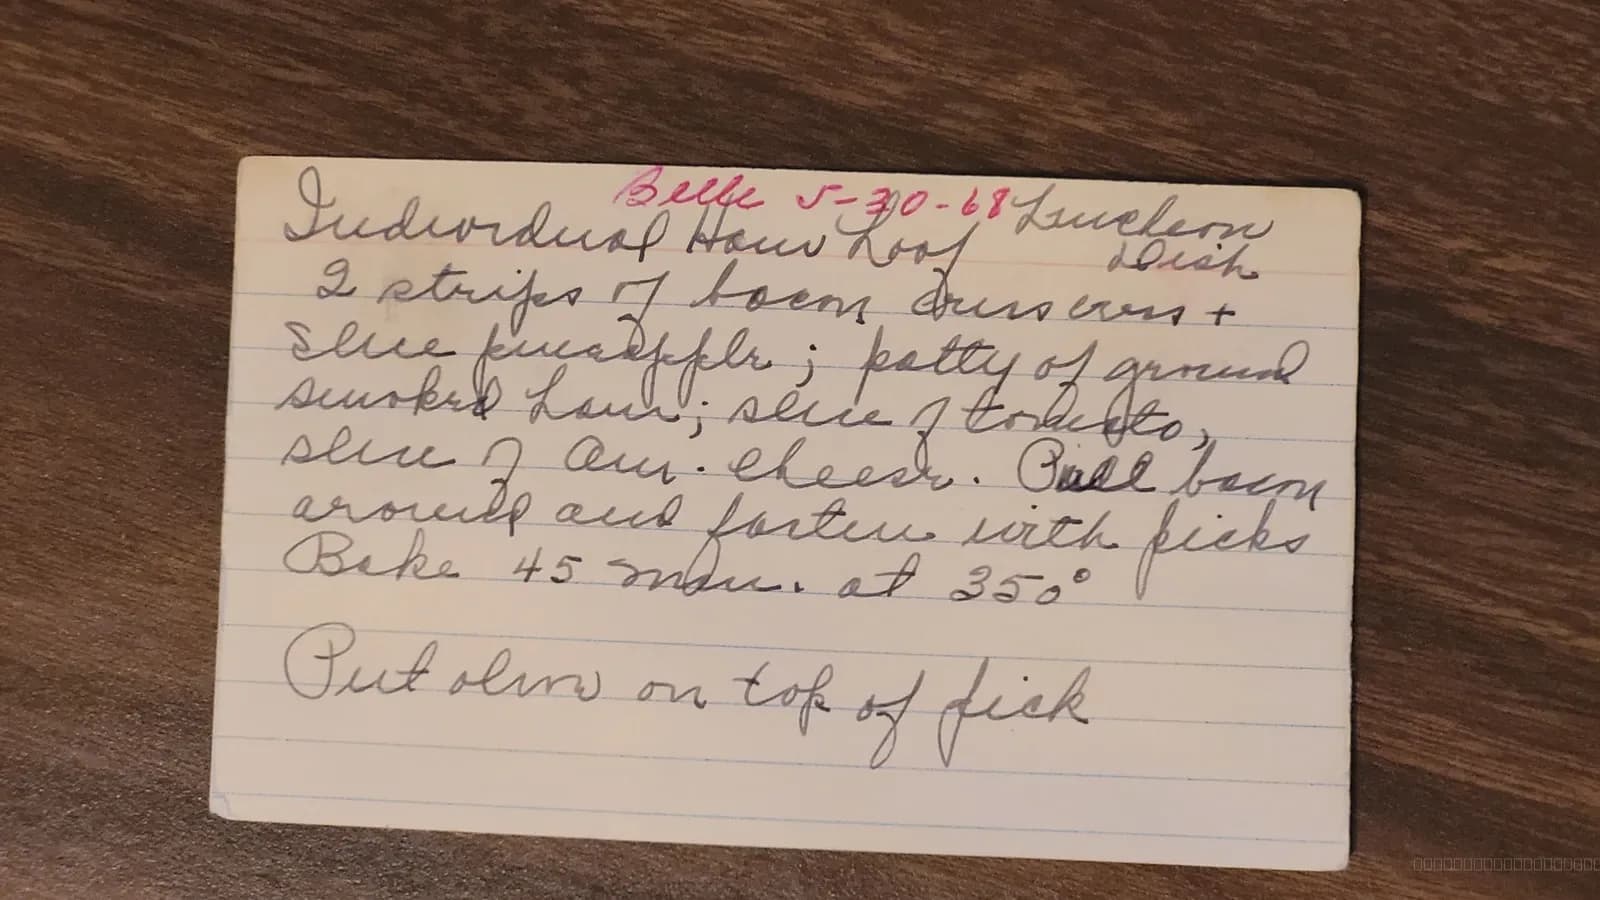 Belle 5-30-68 Luncheon
Individual Ham Loaf Dish
2 strips of bacon criss cross +
Slice pineapple; patty of ground
smoked ham; slice of tomato,
slice of Am. cheese. Pull bacon
around and fasten with picks
Bake 45 min. at 350°
Put olive on top of pick